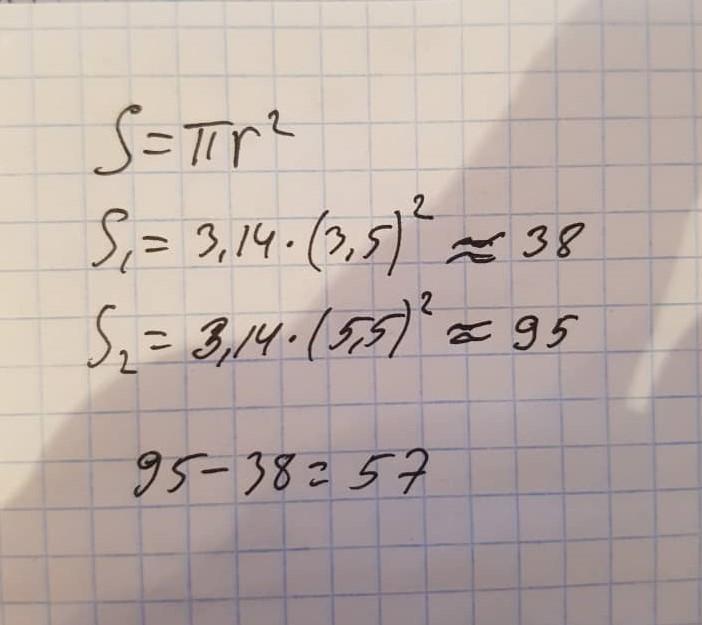 S = πr²
S₁ = 3,14 · (3,5)² ≈ 38
S₂ = 3,14 · (5,5)² ≈ 95
95 - 38 = 57